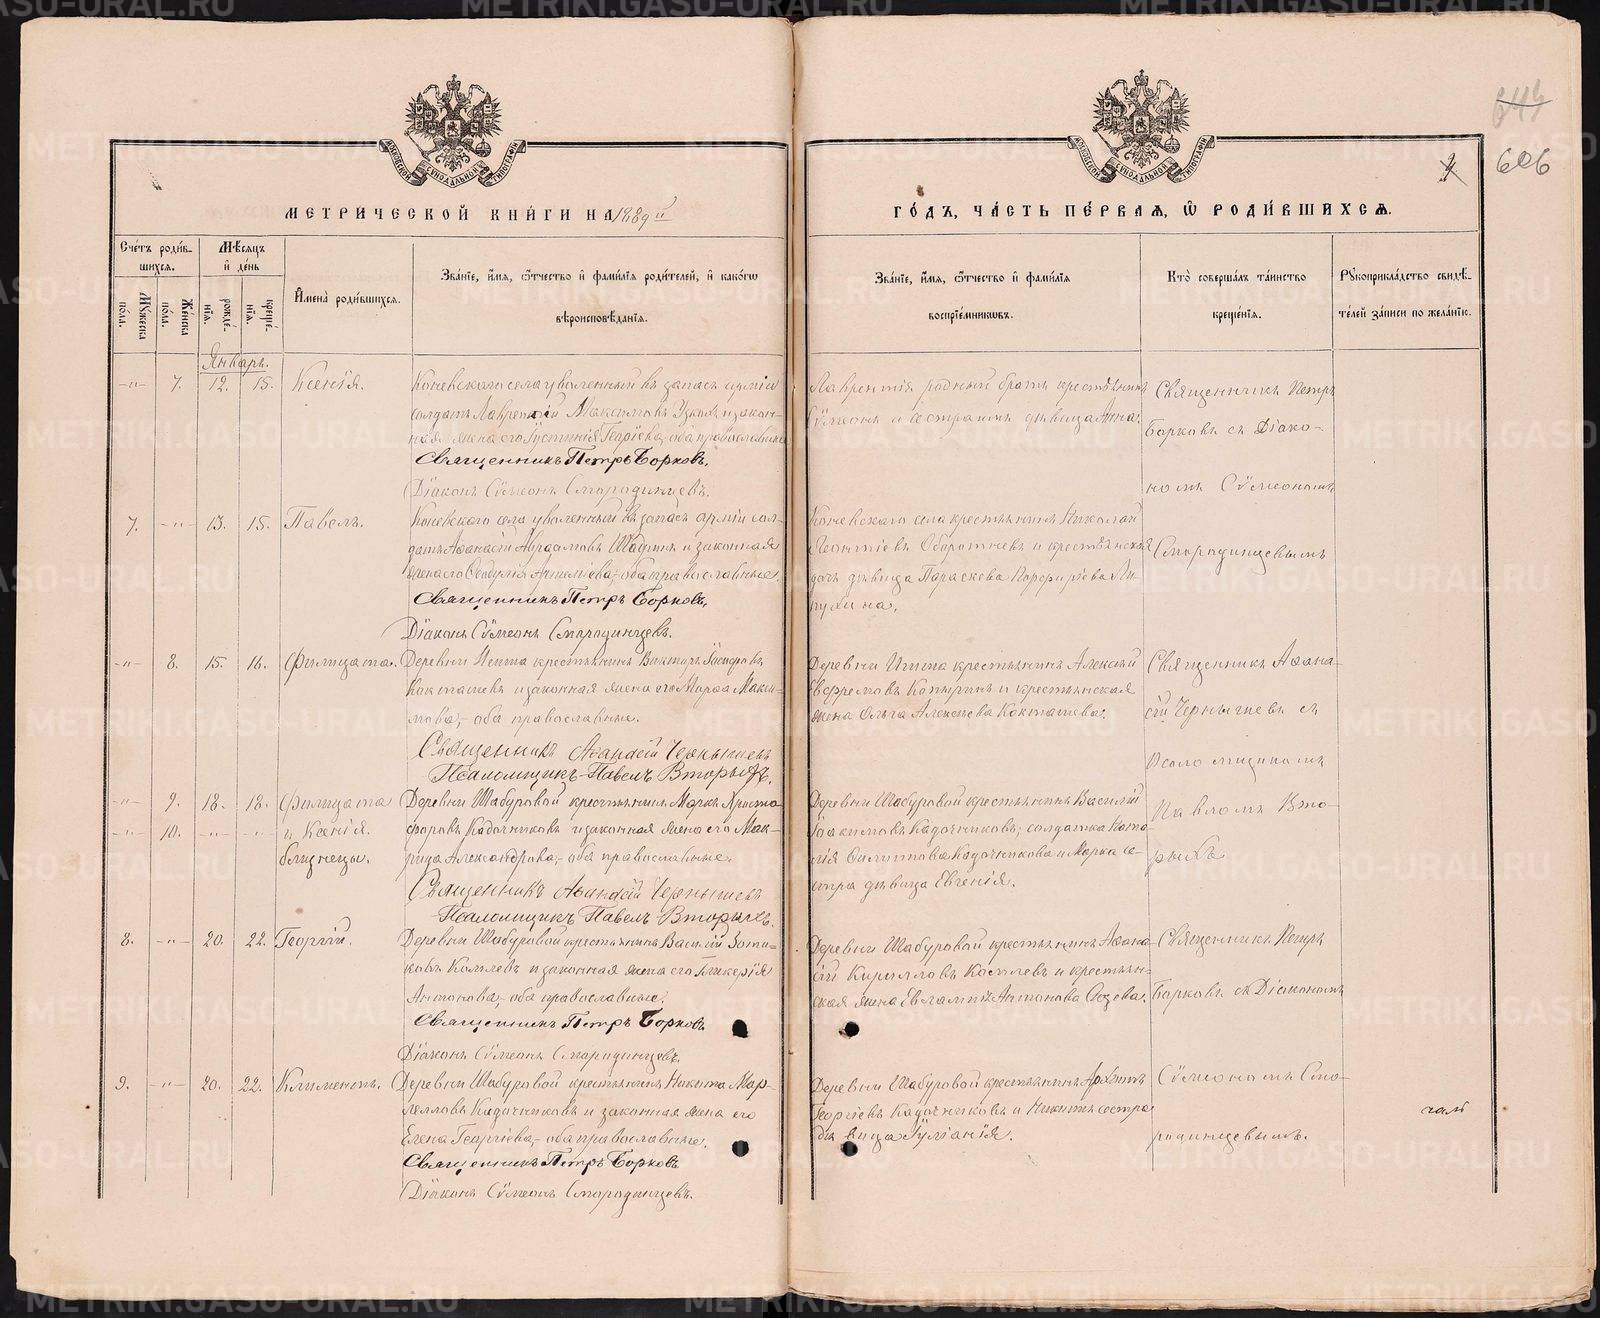 МЕТРИЧЕСКОЙ КНИГИ НА 1889й
ГОДЪ, ЧАСТЬ ПЕРВАЯ, Ѡ РОДИВШИХСЯ.
606
Счетъ родив-
шихся.
Мѣсяцъ
и день
Имена родившихся.
Званіе, имя, отчество и фамилія родителей, и какого
вѣроисповѣданія.
Мужеска
пола.
Женска
пола.
рожде-
нія.
креще-
нія.
Званіе, имя, отчество и фамилія
воспріемниковъ.
Кто совершалъ таинство
крещенія.
Рукоприкладство свидѣ-
телей записи по желанію.
Январь.
-"- 7. 12. 15. Ксенія.
Коневскаго села уволенный въ запасъ арміи
солдатъ Лаврентій Максимовъ и закон-
ная жена его Іустинія Георгіева, оба православные
Священникъ Петръ Борковъ.
Діаконъ Сѵмеонъ Смородинцевъ.
Лаврентія родный братъ крестьянинъ
Сѵмеонъ и сестра имъ дѣвица Анна.
Священникъ Петръ
Борковъ съ Діако-
номъ Сѵмеономъ
7. -"- 13. 15. Павелъ.
Коневскаго села уволенный въ запасъ арміи сол-
датъ Аѳанасій Авраамовъ и законная
жена его оба православные.
Священникъ Петръ Борковъ.
Діаконъ Сѵмеонъ Смородинцевъ.
Коневскаго села крестьянинъ Николай
Леонтіевъ и крестьянская
дочь дѣвица Параскева Порфиріева Ли-
пухина.
Смородинцевымъ
-"- 8. 15. 16. Филицата.
Деревни крестьянинъ Викторъ
Кокташевъ и законная жена его Марѳа Макси-
мова,- оба православные.
Священникъ Аѳанасій Чернышевъ
Псаломщикъ Павелъ Вторыхъ.
Деревни крестьянинъ Алексій
Евфремовъ Копыринъ и крестьянская
жена Ольга Алексѣева Кокташева.
Священникъ Аѳана-
сій Чернышевъ съ
Псаломщикомъ
-"- 9. 18. 18. Филицата
-"- 10. -"- -"- и Ксенія.
близнецы.
Деревни Шабуровой крестьянинъ Маркъ Христо-
форовъ Кадочниковъ и законная жена его Мак-
рида Александрова,- оба православные.
Священникъ Аѳанасій Чернышевъ
Псаломщикъ Павелъ Вторыхъ.
Деревни Шабуровой крестьянинъ Василій
Іоакимовъ Кадочниковъ, солдатка Ната-
лія Филиппова Кадочникова и Марка се-
стра дѣвица Евгенія.
Павломъ Вто-
рыхъ
8. -"- 20. 22. Георгій.
Деревни Шабуровой крестьянинъ Василій Зоти-
ковъ Комлевъ и законная жена его Гликерія
Антонова,- оба православные.
Священникъ Петръ Борковъ
Діаконъ Сѵмеонъ Смородинцевъ.
Деревни Шабуровой крестьянинъ Аѳана-
сій Кирилловъ Комлевъ и крестьян-
ская жена Евлампія Антонова
Священникъ Петръ
Борковъ съ Діакономъ
9. -"- 20. 22. Климентъ.
Деревни Шабуровой крестьянинъ Никита Мар-
келловъ Кадочниковъ и законная жена его
Елена Георгіева,- оба православные.
Священникъ Петръ Борковъ
Діаконъ Сѵмеонъ Смородинцевъ.
Деревни Шабуровой крестьянинъ
Георгіевъ Кадочниковъ и Никиты сестра
дѣвица Іуліанія.
Сѵмеономъ Смо-
родинцевымъ.